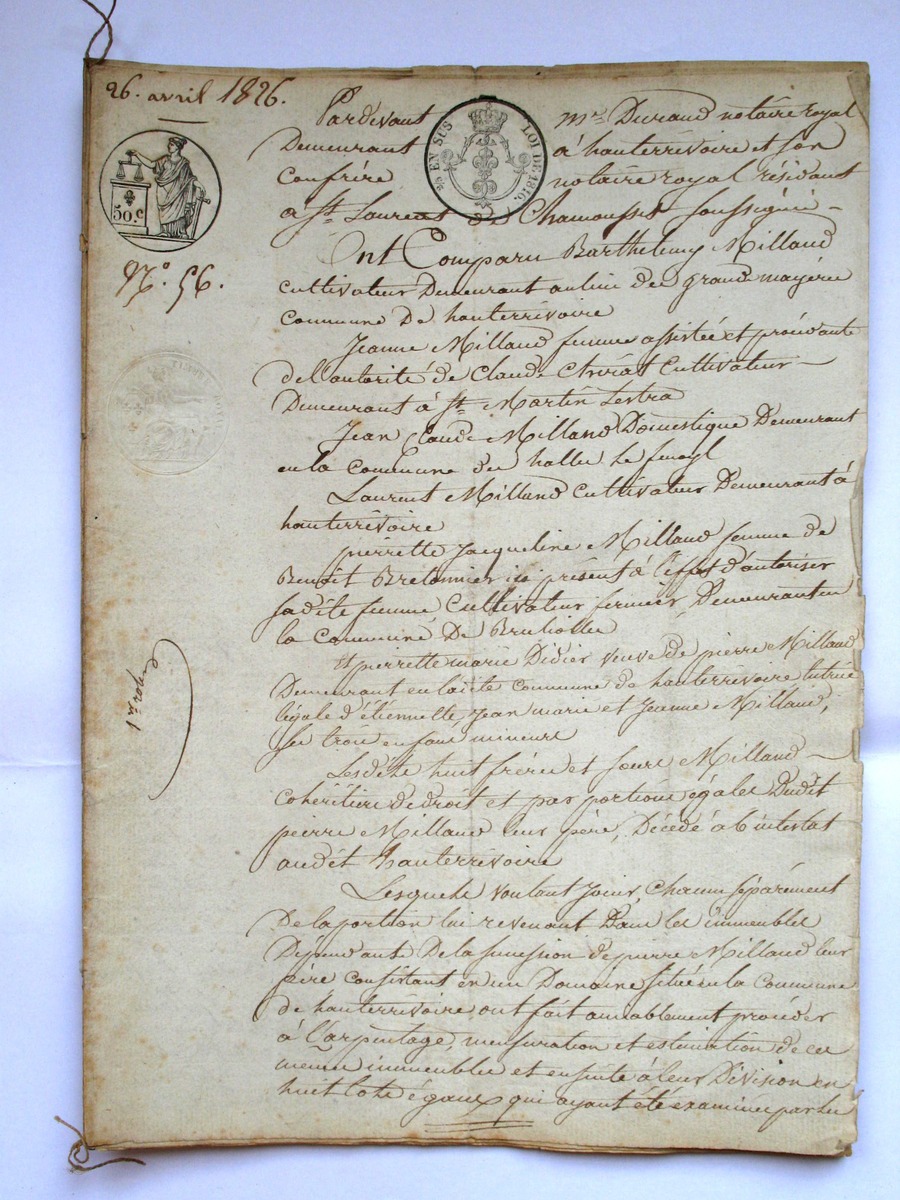 26. avril 1826.
Pardevant Mre. Durand notaire royal
EN SUS LOI DE 1816.
Demeurant à hauterrivoire et son
confrère notaire royal résidant
50.c
a St. Laurent de Chamousset soussignés
N.o 56.
Ont Comparu Barthelemy Milland
cultivateur Demeurant au lieu de grande mayérie
commune De hauterrivoire
Jeanne Milland femme assistée et procédante
de l'autorité de Claude Chirat Cultivateur
Demeurant à St. Martin Lestra
Jean Claude Milland Domestique Demeurant
en la commune de halles le fenoyl
Laurent Milland cultivateur Demeurant à
hauterrivoire
pierrette Jacqueline Milland femme de
Benoit Bretonnier ici présent à l'effet d'autoriser
sadite femme Cultivateur fermier Demeurant en
la commune De Brulioles
Et pierrette marie Didier veuve de pierre Milland
Demeurant en ladite commune de hauterrivoire tutrice
légale d'étiennette, Jean marie et Jeanne Milland,
ses trois enfans mineurs
Lesdits huit frères et sœurs Milland
cohéritiers de droit et par portions égales Dudit
pierre Milland leur père, Décédé ab intestat
audit hauterrivoire
Lesquels voulant Jouir, Chacun séparément
De la portion lui revenant Dans les immeubles
Dépendant De la succession de pierre Milland leur
père consistant en un Domaine situé en la Commune
de hauterrivoire ont fait amiablement procéder
à l'arpentage, mensuration et estimation de ces
mêmes immeubles et ensuite à leur Division en
huit lots égaux qui ayant été examinés par les